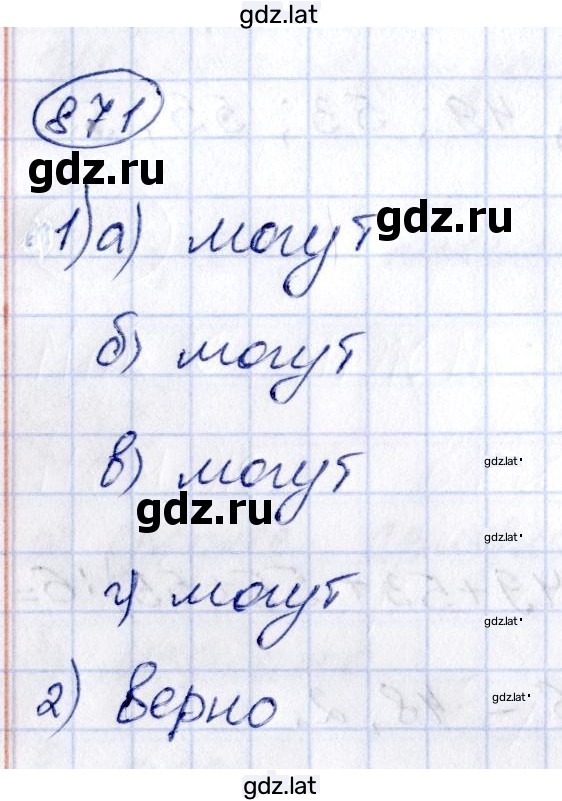 gdz.lat
871
gdz.ru
1) а) могут
gdz.ru
б) могут
в) могут
gdz.lat
gdz.ru
gdz.lat
г) могут
gdz.lat
2) верно
gdz.lat
gdz.lat